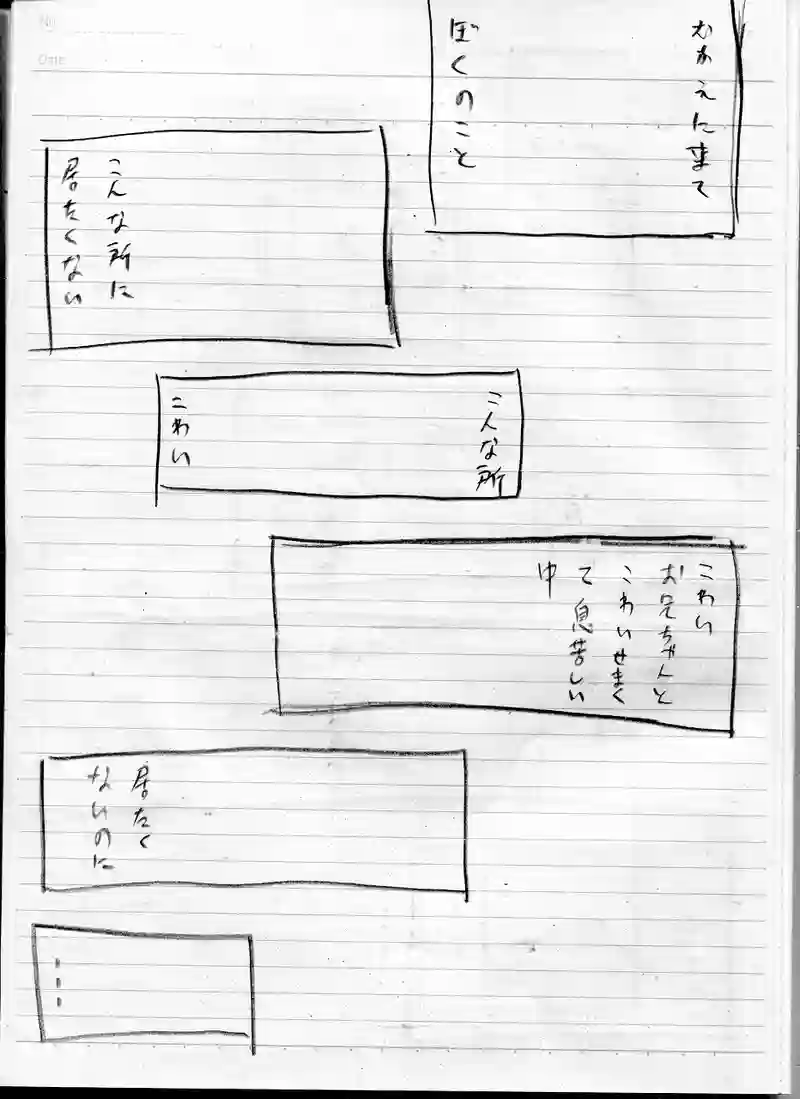 むかえに来て
ぼくのこと
こんな所に
居たくない
こんな所
こわい
こわい
お兄ちゃんと
こわいせまく
て息苦しい
中
居たく
ないのに
…